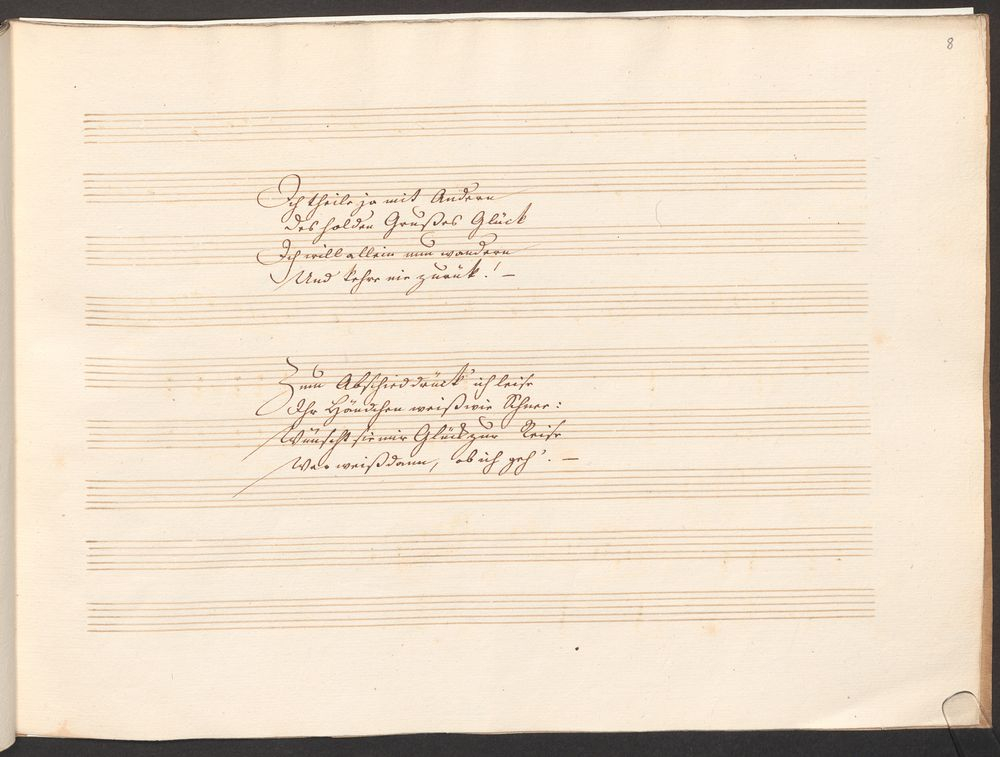 8
Ich theile ja mit Andern
Des holden Grußes Glück
Ich will allein nun wandern
Und kehre nie zurück! –
Zum Abschied drück' ich leise
Ihr Händchen weiß wie Schnee:
Wünscht sie mir Glück zur Reise
Wer weiß dann, ob ich geh'. –